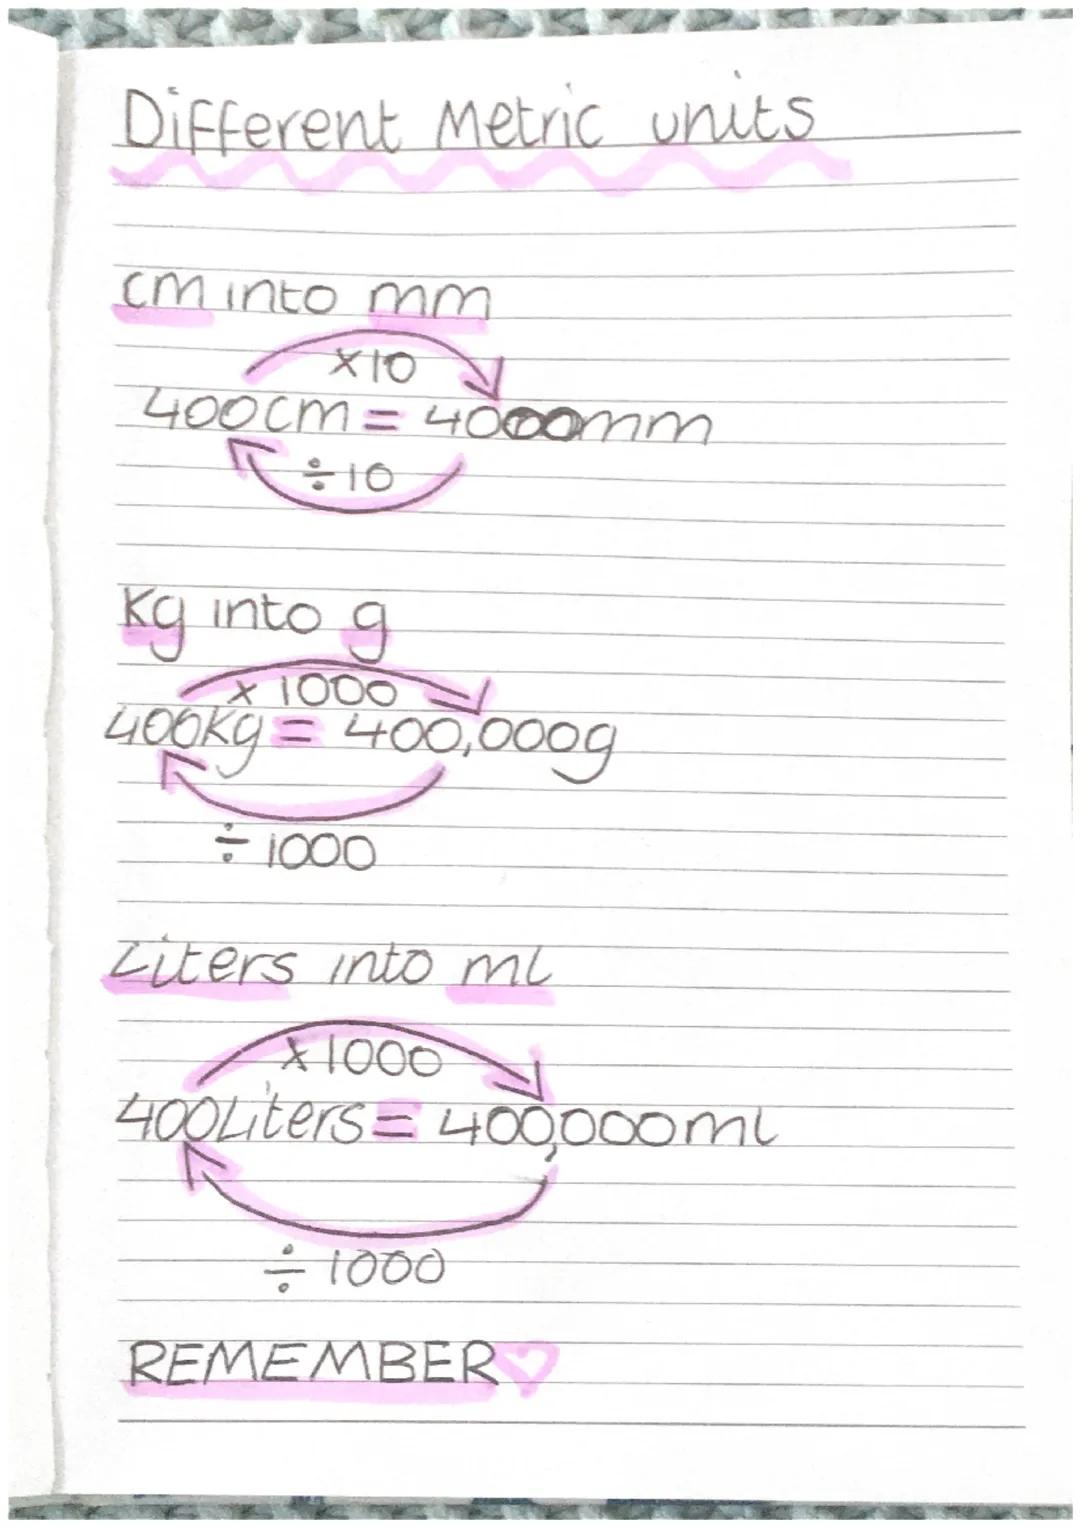 Different Metric units
cm into mm
×10
400cm = 4000mm
÷10
Kg into g
× 1000
400Kg = 400,000g
÷ 1000
Liters into ml
×1000
400Liters = 400,000ml
÷ 1000
REMEMBER♡